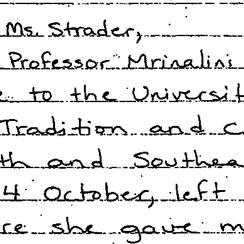 Ms. Strader,
Professor Mrinalini
to the Universit
Tradition and C
th and Southea
4 October, left
re she gave m